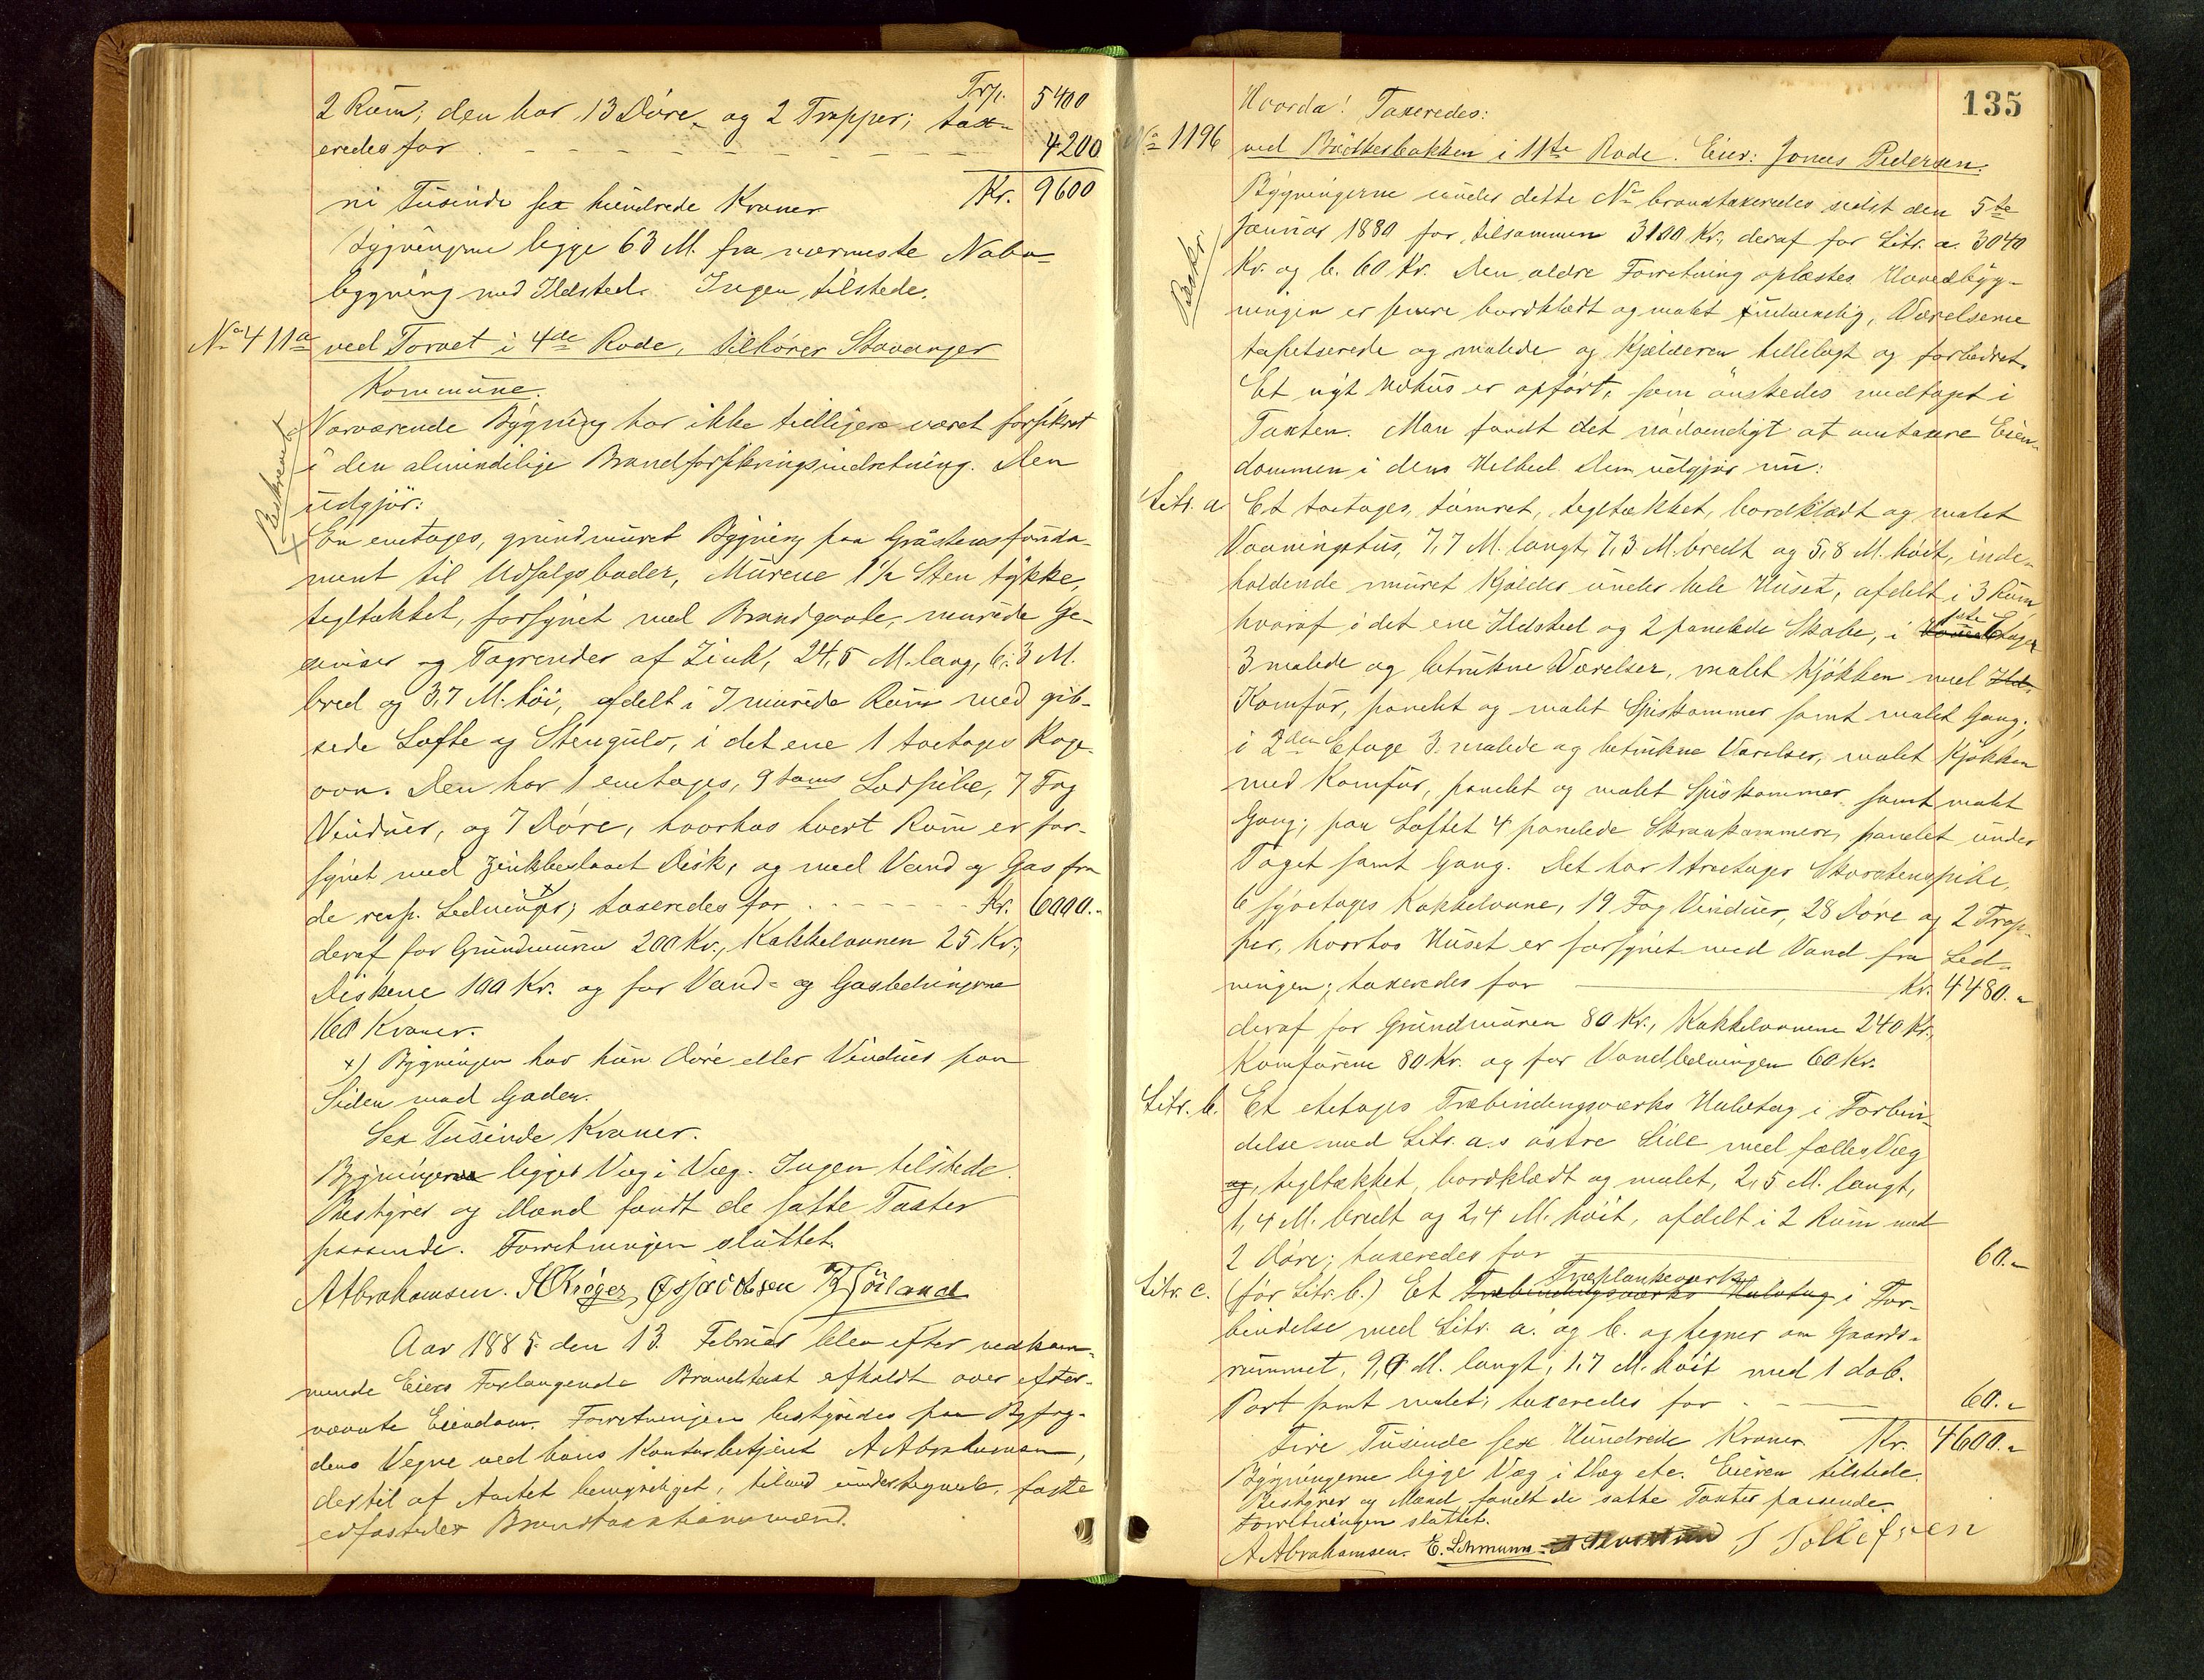 Trp. 5400
2 Rum; den har 13 Døre og 2 Trapper; tax-
eredes for - - - - 4200
ni Tusinde sex hundrede Kroner Kr. 9600
Bygningerne ligge 63 M. fra nærmeste Nabo-
bygning med Ildsted. Ingen tilstede.
No 411a ved Torvet i 4de Rode, tilhører Stavanger
Kommune.
Beskrevet
Nærværende Bygning har ikke tidligere været forsikret
i den almindelige Brandforsikringsindretning. Den
udgjør:
En enetages, grundmuret Bygning paa Graastensfunda-
ment til Udsalgsboder, Murene 1½ Sten tykke,
tegltækket, forsynet med Brandgavle, murede Ge-
simser og Tagrender af Zink, 24,5 M. lang, 6,3 M.
bred og 3,7 M. høi, afdelt i 7 murede Rum med gib-
sede Lofte og Stengulv, i det ene 1 toetages Koge-
ovn. Den har 1 enetages, 9 toms Lodpibe, 7 Fag
Vinduer, og 7 Døre, hvorhos hvert Rum er for-
synet med zinkbeslaaet Disk, og med Vand og Gas fra
de resp. Ledninger; x taxeredes for - - - Kr. 6000.-
deraf for Grundmuren 200 Kr., Kakkelovnen 25 Kr.,
Diskene 100 Kr. og for Vand- og Gasledningerne
160 Kroner.
x) Bygningen har kun Døre eller Vinduer paa
Siden mod Gaden.
Sex Tusinde Kroner.
Bygningen ligger Væg i Væg. Ingen tilstede.
Bestyrer og Mænd fandt de satte Taxter
passende. Forretningen sluttet.
AAbrahamsen. H Krøger, Jacobsen
Aar 1885 den 13. Februar blev efter vedkom-
mende Eiers Forlangende Brandtaxt afholdt over efter-
nævnte Eiendom. Forretningen bestyredes paa Byfog-
dens Vegne ved hans Kontorbetjent A Abrahamsen,
dertil af Amtet bemyndiget, tilmed undertegnede, faste
edfæstede Brandtaxtationsmænd.
135
Hvorda! Taxeredes:
No 1196 ved Bäkkebakken i 11te Rode. Eier: Jonas Pedersen.
Beskr.
Bygningerne under dette No brandtaxeredes sidst den 5te
Januar 1880 for tilsammen 3100 Kr., deraf for Litr. a. 3040
Kr. og b. 60 Kr. Den ældre Forretning oplæstes. Hovedbyg-
ningen er senere bordklædt og malet udvendig, Værelserne
tapetserede og malede og Kjælderen hellelagt og forbedret.
Et nyt Udhus er opført, som ønskedes medtaget i
Taxten. Man fandt det nødvendigt at omtaxere Eien-
dommen i dens Helhed. Den udgjør nu:
Litr. a Et toetages, tømret, tegltækket, bordklædt og malet
Vaaningshus, 7,7 M. langt, 7,3 M. bredt og 5,8 M. høit, inde-
holdende muret Kjelder under hele Huset, afdelt i 3 Rum,
hvoraf i det ene Ildsted og 2 panelede Skabe, i 1ste Etage
3 malede og betrukne Værelser, malet Kjøkken med
Komfur, panelet og malet Spiskammer samt malet Gang,
i 2den Etage 3 malede og betrukne Værelser, malet Kjøkken
med Komfur, panelet og malet Spiskammer samt malet
Gang; paa Loftet 4 panelede Skraakammere, panelet under
Taget samt Gang. Det har 1 treetages Skorstenspibe,
6 toetages Kakkelovne, 19 Fag Vinduer, 28 Døre og 2 Trap-
per, hvorhos Huset er forsynet med Vand fra Led-
ningen; taxeredes for Kr. 4480.-
deraf for Grundmuren 80 Kr., Kakkelovnene 240 Kr.,
Komfurene 80 Kr. og for Vandledningen 60 Kr.
Litr. b. Et etetages Træbindingsværks Halvtag i Forbin-
delse med Litr. a.s østre Side med fælles Væg
og, tegltækket, bordklædt og malet, 2,5 M. langt,
1,4 M. bredt og 2,4 M. høit, afdelt i 2 Rum med
2 Døre; taxeredes for 60.-
Træplankeværk
Litr. c. (før Litr. b.) Et Træbindingsværks Halvtag i For-
bindelse med Litr. a. og b. og hegner om Gaards-
rummet, 9,0 M. langt, 1,7 M. høit med 1 dob.
Port samt malet; taxeredes for - - 60.-
Fire Tusinde sex Hundrede Kroner Kr. 4600.-
Bygningerne ligge Væg i Væg etc. Eieren tilstede.
Bestyrer og Mænd fandt de satte Taxter passende.
Forretningen sluttet.
AAbrahamsen. E. Lehmann T Tollefsen